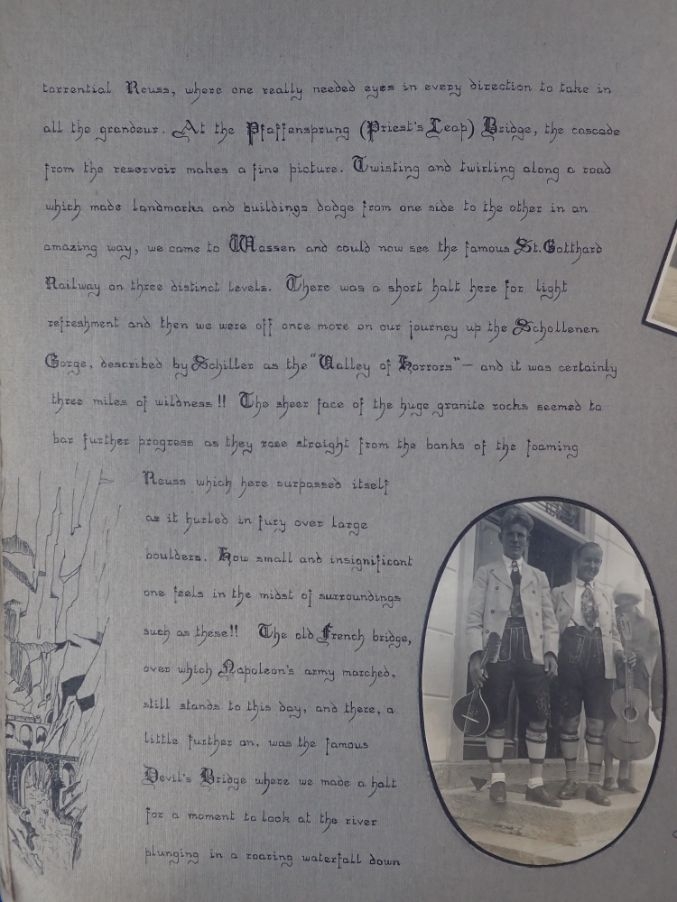 torrential Reuss, where one really needed eyes in every direction to take in
all the grandeur. At the Pfaffensprung (Priest's Leap) Bridge, the cascade
from the reservoir makes a fine picture. Twisting and twirling along a road
which made landmarks and buildings dodge from one side to the other in an
amazing way, we came to Wassen and could now see the famous St. Gotthard
Railway on three distinct levels. There was a short halt here for light
refreshment and then we were off once more on our journey up the Schollenen
Gorge, described by Schiller as the "Valley of Horrors" — and it was certainly
three miles of wildness!! The sheer face of the huge granite rocks seemed to
bar further progress as they rose straight from the banks of the foaming
Reuss which here surpassed itself
as it hurled in fury over large
boulders. How small and insignificant
one feels in the midst of surroundings
such as these!! The old French bridge,
over which Napoleon's army marched,
still stands to this day, and there, a
little further on, was the famous
Devil's Bridge where we made a halt
for a moment to look at the river
plunging in a roaring waterfall down